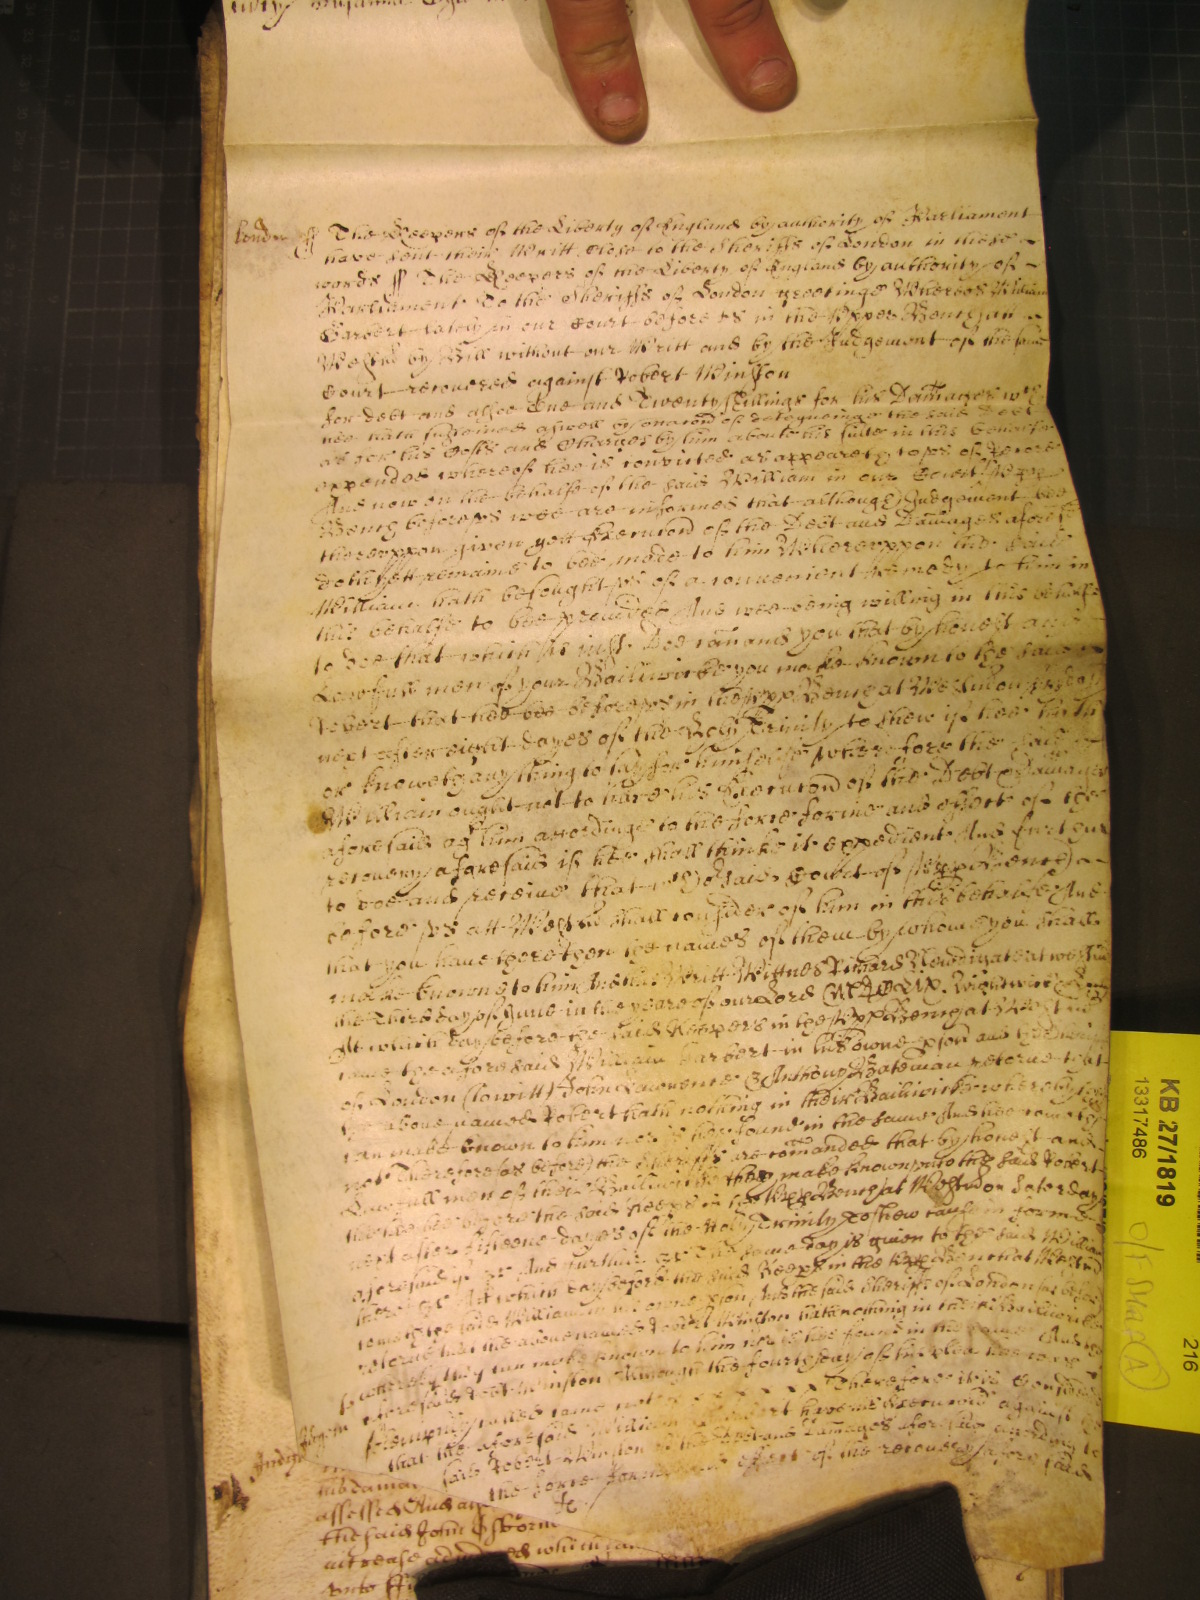 London ss The Keepers of the Liberty of England by authority of Parliament
have sent their Writt close to the Sheriffs of London in these
words ss The Keepers of the Liberty of England by authority of
Parliament To the Sheriffs of London greetinge Whereas William
Harbert lately in our Court before us in the Upper Bench att
Westm̄ by Bill without our Writt and by the Judgement of the same
Court recovered against Robert Winston
for debt and alsoe One and Twenty shillings for his Damages wch
hee hath susteined aswell by occasion of deteyneinge the said Debt
as for his Costs and Charges by him about his suite in this behalfe
expended whereof hee is convicted as appeareth to us of Record
And now on the behalfe of the said William in our Court of Upper
Bench before us wee are informed that although Judgement bee
thereuppon given yett Execucon of the Debt and Damages aforesd
doth yett remaine to bee made to him Whereuppon the said
William hath besought us of a convenient Remedy to him in
this behalfe to bee provided And wee being willing in this behalfe
to doe that which is just Doe comand you that by honest and
Lawfull men of your Bailiwicke you make knowne to the said
Robert that hee bee before us in the Upp Bench at Westm on
next after eight dayes of the Holy Trinity to shew if hee hath
or knoweth any thing to say for himselfe wherefore the said
William ought not to have his Execucon of the Debt & Damages
aforesaid agt him accordinge to the force forme and effect of the
recovery aforesaid if hee shall thinke it expedient And further
to doe and receive that wch o said Court of Upp Bench
before us att Westm shall consider of him in this behalfe And
that you have there then the names of them by whome you shall
make knowne to him And this Writt Witnes Richard Newdigate at Westm
the Third day of June in the yeare of our Lord MDCLIX
At which day before the said Keepers in the Upp Bench at Westm
came the aforesaid William Harbert in his owne pson and the Sheriffs
of London (to witt) John Lawrence & Anthony Bateman retorne that
the above named Robert hath nothing in their Bailiwicke whereby they
can make knowne to him nor is hee found in the same And hee cometh
not Therefore (as before) the Sheriffs are comanded that by honest and
Lawfull men of their Bailiwicke they make knowne unto the said Robert
that hee bee before the said Keeps in the Upp Bench at Westm on Saterday
next after fifteene dayes of the Holy Trinity To shew cause in forme
aforesaid if &c And further &c The same day is given to the said William
there &c At which day before the said Keeps in the Upp Bench at Westm
cometh the said William in his owne pson And the said Sheriffs of London (as before)
retorne that the above named Robert Winston hath nothing in their Bailiwicke
whereby they can make knowne to him nor is hee found in the same And the
aforesaid Robt Winston Although the fourth day of the plea hee were
solempnly called came not Therefore it is Considered
that the aforesaid William Harbert have his Execucon against the
said Robert Winston of the Debt and Damages aforesaid according to
the force forme and effect of the recovery aforesaid
&c
Judgem
his damag
assessed And
the said John Osborne
increase adjudged which in
KB 27/1819
13317486
216